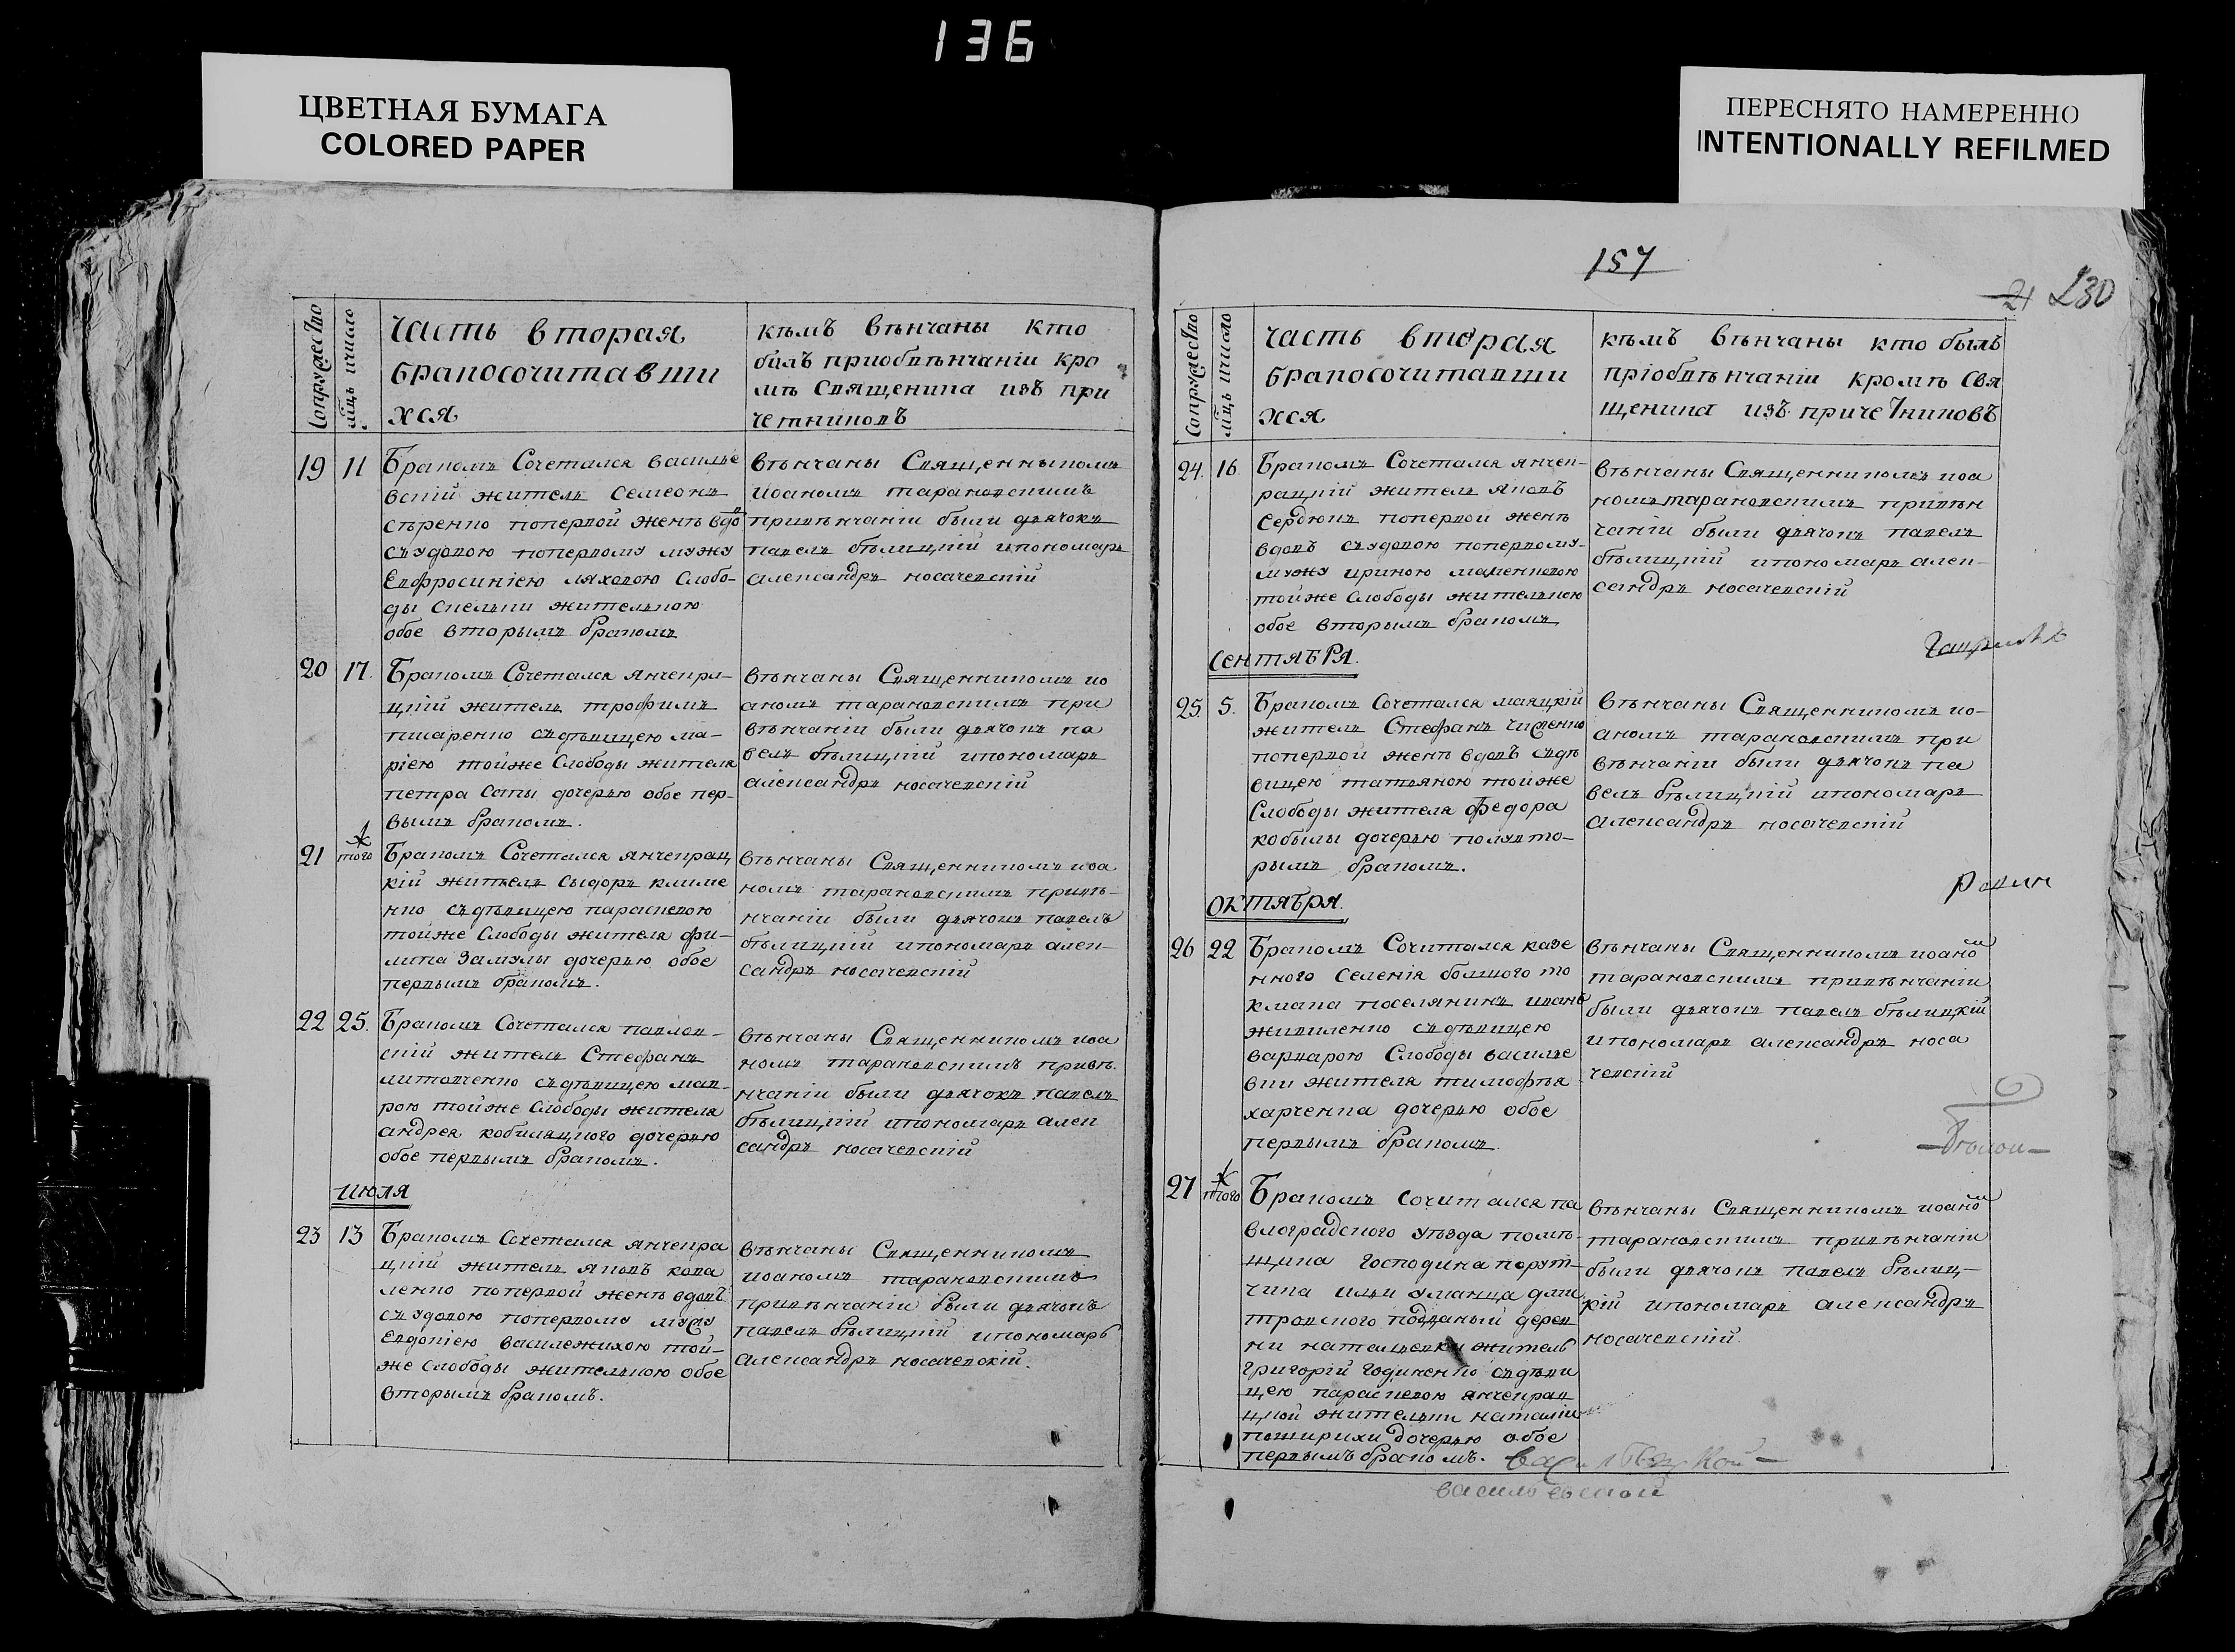 136
ЦВЕТНАЯ БУМАГА
COLORED PAPER
ПЕРЕСНЯТО НАМЕРЕННО
INTENTIONALLY REFILMED
Сопружество
мѣць ичисло
Часть вторая
бракосочитавши
хся
кѣмъ вѣнчаны кто
билъ приобвѣнчаніи кро
мѣ Священика изъ при
четниковъ
19
11
Бракомъ Сочетался василье
вскій житель Семеонъ
Сѣренко поперной женѣ вдо
съ удовою поперному мужу
Евфросиніею ляховою Слобо-
ды Споельки жителькою
обое вторымъ бракомъ
вѣнчаны Священныкомъ
иоаномъ тарановскимъ
привѣнчаніи были дьячокъ
павелъ бѣлицкій ипономаръ
александръ носачевскій
20
17.
Бракомъ Сочетался янчекра-
цкій житель трофимъ
писаренко съ дѣвицею ма-
ріею тойже Слободы жителя
петра Соты дочерью обое пер-
вымъ бракомъ.
вѣнчаны Священникомъ ио
аномъ тарановскимъ при
вѣнчаніи были дьячокъ па
велъ бѣлицкій ипономаръ
александръ носачевскій
21
того
Бракомъ Сочетался янчекрац
кій житель Сыдоръ климе
нко съ дѣвицею параскевою
тойже Слободы жителя фи-
липа Замулы дочерью обое
первымъ бракомъ.
вѣнчаны Священникомъ иоа
номъ тарановскимъ привѣ-
нчаніи были дьячокъ павелъ
бѣлицкій ипономаръ алек-
сандръ носачевскій
22
25.
Бракомъ Сочетался павлов-
скій житель Стефанъ
литовченко съ дѣвицею мав-
рою тойже Слободы жителя
андрея кобиляцкого дочерью
обое первымъ бракомъ.
вѣнчаны Священникомъ иоа
номъ тарановскимъ привѣ-
нчаніи были дьячокъ павелъ
бѣлицкій ипономаръ алек
сандръ носачевскій
июля
23
13
Бракомъ Сочетался янчекра
цкій житель яковъ кова
ленко поперной женѣ вдовъ
съ удовою поперному мужу
Евдокіею василежихою той-
же Слободы жителькою обое
вторымъ бракомъ.
вѣнчаны Священникомъ
иоаномъ тарановскимъ
привѣнчаніи были дьячокъ
павелъ бѣлицкій ипономаръ
александръ носачевскій.
157
21 230
Сопружество
мѣць ичисло
часть вторая
бракосочитавши
хся
кѣмъ вѣнчаны кто былъ
пріобвѣнчаніи кромѣ Свя
щеника изъ причетниковъ
24.
16.
Бракомъ Сочетался янчек-
рацкій житель яковъ
Сердюкъ поперной женѣ
вдовъ съ удовою поперному-
мужу ириною
тойже Слободы жителькою
обое вторымъ бракомъ
вѣнчаны Священникомъ иоа
номъ тарановскимъ привѣн
чаніи были дьячокъ павелъ
бѣлицкій ипономаръ алек-
сандръ носачевскій
Сентября.
25.
5.
Бракомъ Сочетался маяцкій
житель Стефанъ
поперной женѣ вдовъ съ дѣ
вицею татьяною тойже
Слободы жителя федора
кобылы дочерью полувто-
рымъ бракомъ.
вѣнчаны Священникомъ ио-
аномъ тарановскимъ при
вѣнчаніи были дьячокъ па
велъ бѣлицкій ипономаръ
александръ носачевскій
Октября.
26
22
Бракомъ Сочитался казе
нного Селенія болшого то
кмака поселянинъ иванъ
живиленко съ дѣвицею
варварою Слободы василье
вки жителя тимофѣя
харченка дочерью обое
первымъ бракомъ.
вѣнчаны Священникомъ иоаном
тарановскимъ привѣнчаніи
были дьячокъ павелъ бѣлицкій
ипономаръ александръ носа
чевскій
27
того
Бракомъ сочитался па
влоградского уѣзда помѣ-
щика господина порут-
чика ильи уманца дми
тровского подданый дерев
ни наталиевки житель
григорій годиненко съ дѣви
цею параскевою янчекрац
цкой жительки наталіи
покирихи дочерью обое
первымъ бракомъ.
вѣнчаны Священникомъ иоаном
тарановскимъ привѣнчаніи
были дьячокъ павелъ бѣлиц-
кій ипономаръ александръ
носачевскій.
васильевской